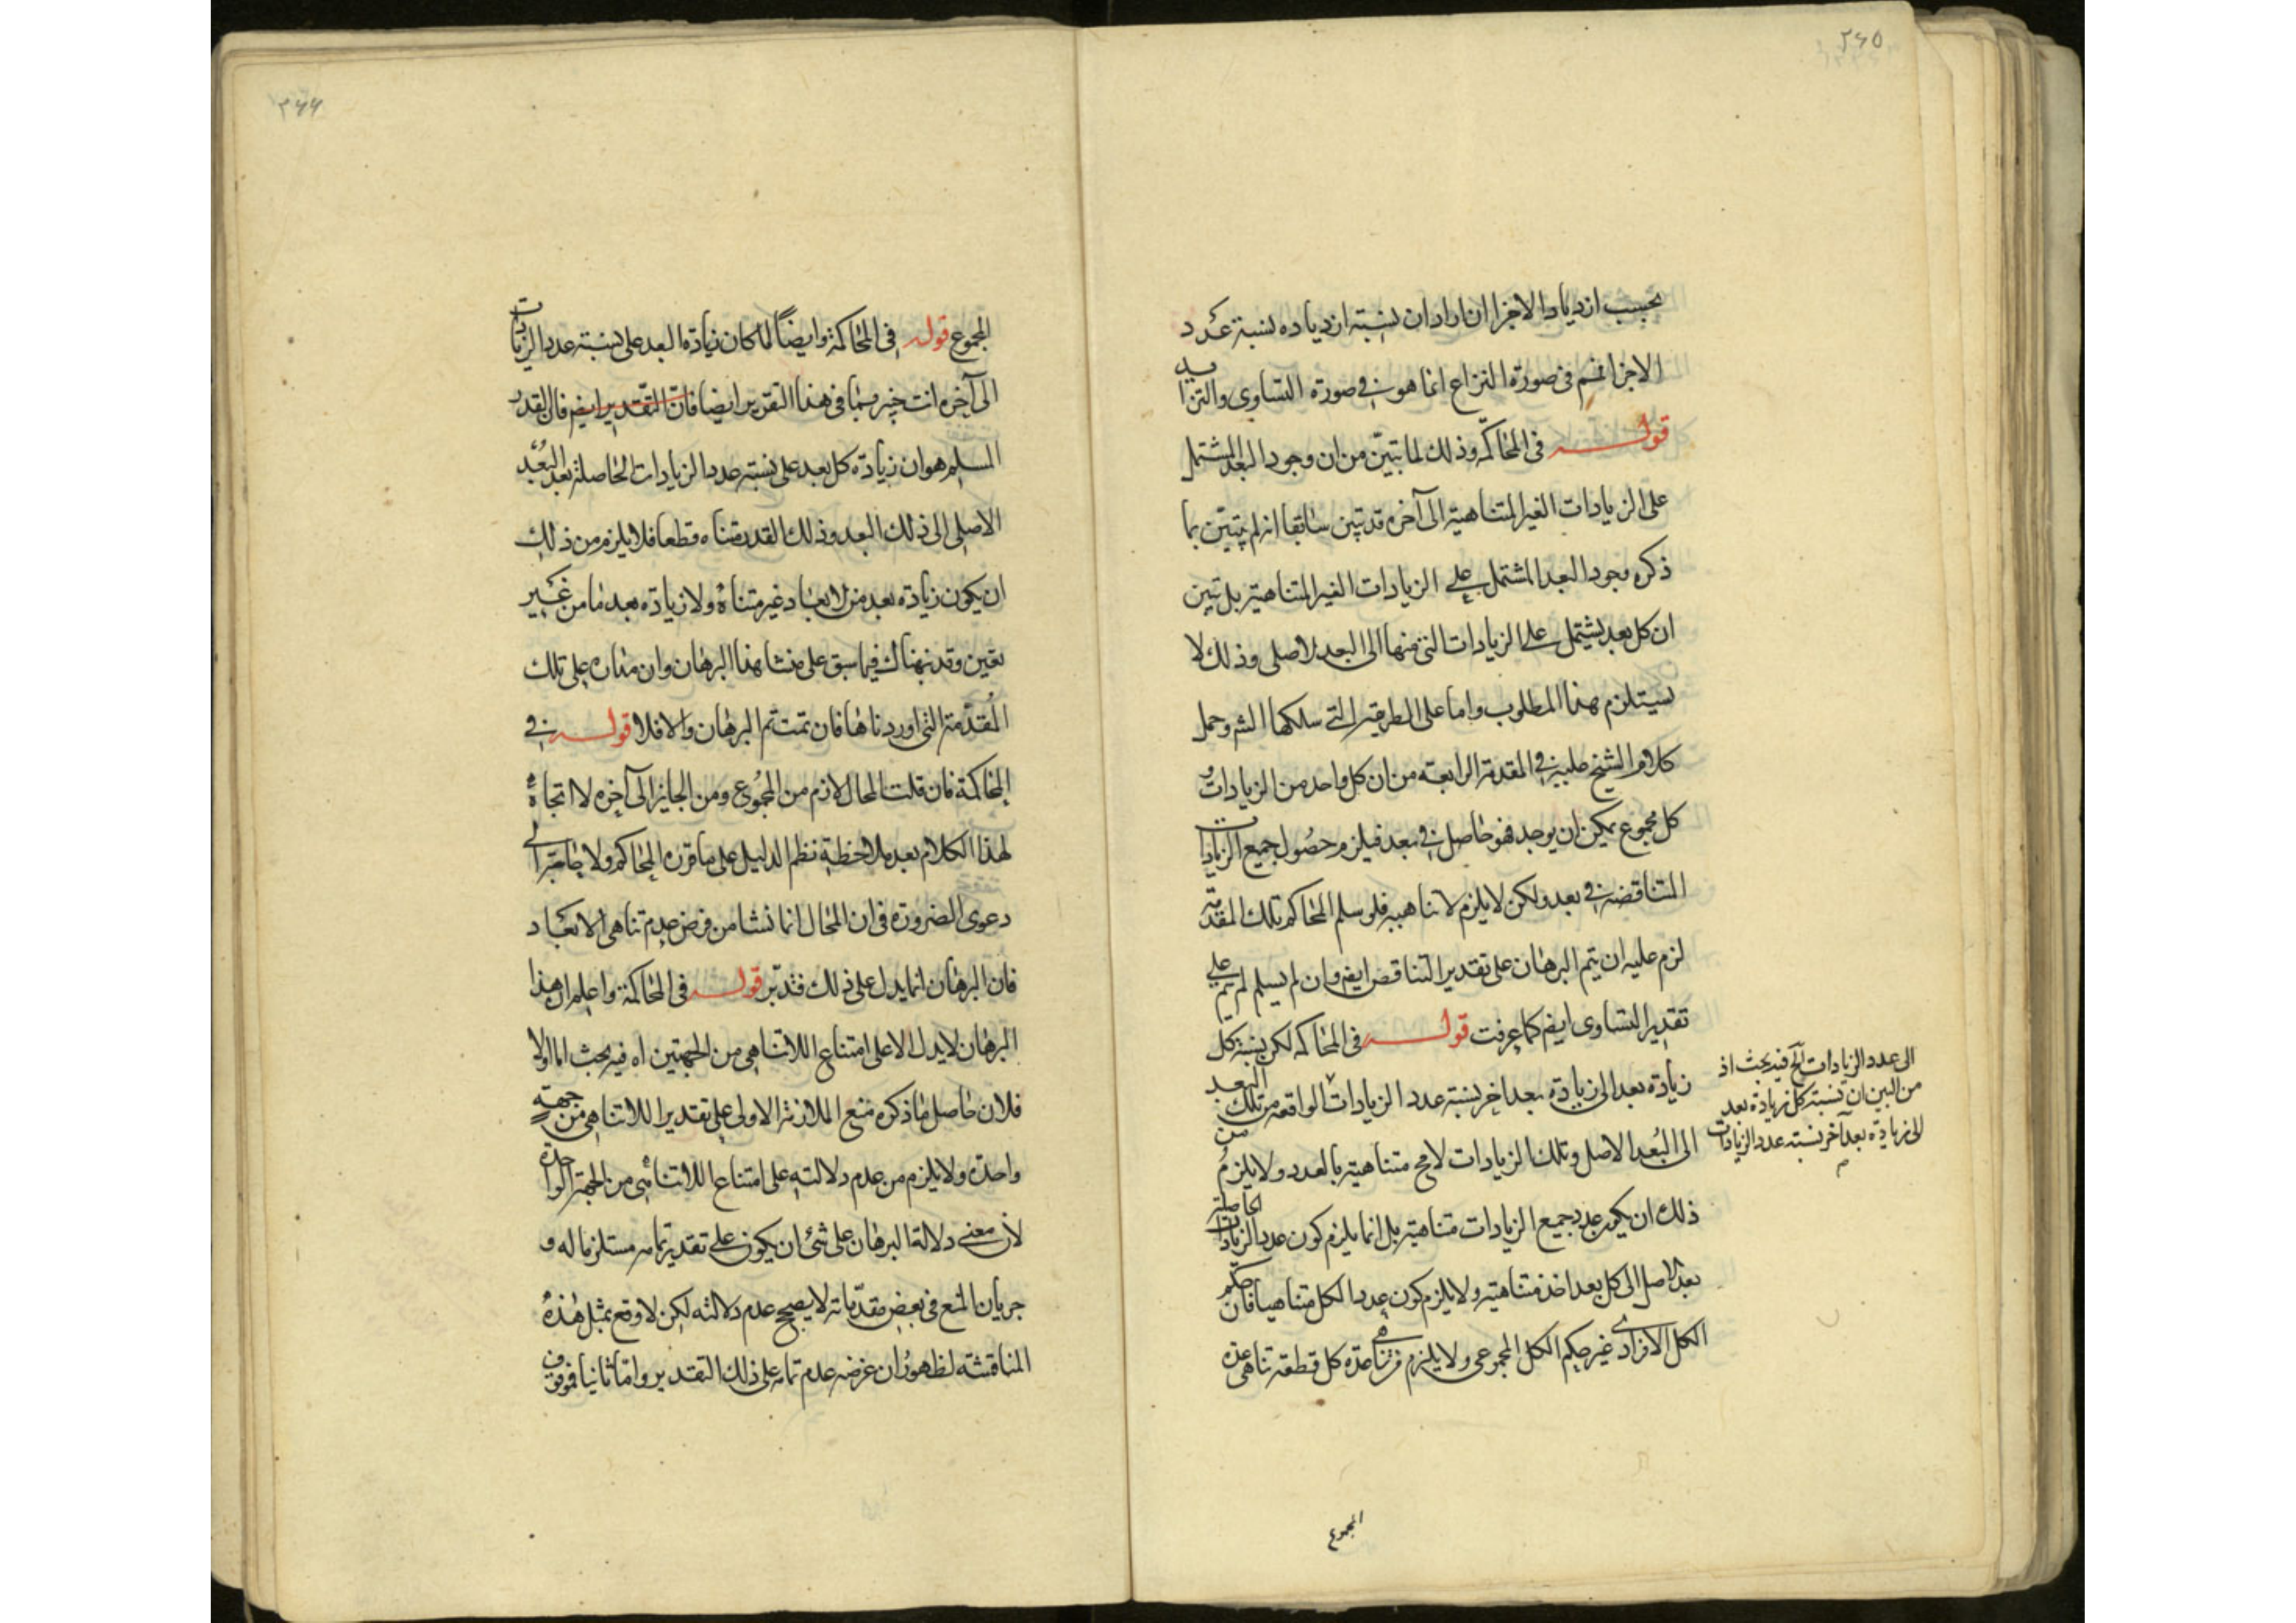 ٢٦٥
بحسب ازدياد الاجزا ان اراد ان نسبته ازدياده نسبة عدد
الاجزا ثم فى صورة النزاع انما هو فى صورة التساوى والتزايد
قوله فى المحاكمة وذلك لما تبيّن من ان وجود البعد المشتمل
على الزيادات الغير المتناهية الى آخره قد تبين سابقا انه لم يتبيّن بما
ذكره وجود البعد المشتمل على الزيادات الغير المتناهية بل تبين
ان كل بعد يشتمل على الزيادات التى منها الى البعد الاصلى وذلك لا
يستلزم هذا المطلوب واما على الطريقة التى سلكها الشر وحمل
كلام الشيخ عليه فى المقدمة الرابعة من ان كل واحد من الزيادات و
كل مجموع يمكن ان يوجد فهو حاصل فى بعد فيلزم حصول جميع الزيادات
المتناقضة فى بعد ولكن لا يلزم لا تناهيه فلو سلم المحاكم تلك المقدمة
لزم عليه ان يتم البرهان على تقدير التناقص ايضم وان لم يسلم لم يتم على
تقدير التساوى ايضم كما عرفت قوله فى المحاكمة لكن نسبة كل
زيادة بعد الى زيادة بعد اخر نسبة عدد الزيادات الواقعة من تلك البعد
الى البُعد الاصل وتلك الزيادات لا مح متناهية بالعدد ولا يلزم من
ذلك ان يكون عدد جميع الزيادات متناهية بل انما يلزم كون عدد الزيادات الحاصلة
بعد الاصل الى كل بعد اخذ متناهية ولا يلزم كون عدد الكل متناهيا فان حكم
الكل الافرادى غير حكم الكل المجموعى ولا يلزم من تناهى عدة كل قطعة تناهى عدة
الى عدد الزيادات آلخ فيه بحث اذ
من البين ان نسبة كل زيادة بعد
الى زيادة بعد آخر نسبته عدد الزيادات
م
المجموع
٢٦٦
المجموع قوله فى المحاكمة وايضاً لما كان زيادة البعد على نسبته عدد الزيادات
الى آخره انت خبير بما فى هذا التقرير ايضا فانّ التقدير ايضم فان القدر
المسلم هو ان زيادة كل بعد على نسبته عدد الزيادات الحاصلة بعد البُعد
الاصلى الى ذلك البعد وذلك القدر متناه قطعا فلا يلزم من ذلك
ان يكون زيادة بعد من الابعاد غير متناه ولا زيادة بعد ما من غير
تعين وقد نبهناك فيما سبق على منشا هذا البرهان وان مناره على تلك
المُقدّمة التى اوردناها فان تمت تم البرهان والا فلا قوله فى
المحاكمة فان قلت المحال لازم من المجموع ومن الجايز الى آخره لا اتجاه
لهذا الكلام بعد ملاحظة نظم الدليل على ما قرره المحاكم ولا حاجة الى
دعوى الضرورة فى ان المحال انما نشا من فرض عدم تناهى الابعاد
فان البرهان انما يدل على ذلك فتدبّر قوله فى المحاكمة واعلم ان هذا
البرهان لا يدل الا على امتناع اللاتناهى من الجهتين اه فيه بحث اما اولا
فلان حاصل ما ذكره منع الملازمة الاولى على تقدير اللاتناهى من جهةٍ
واحدة ولا يلزم من عدم دلالته على امتناع اللاتناهى من الجهة الواحدة
لان معنى دلالة البرهان على شئ ان يكون على تقدير تمامه مستلزما له و
جريان المنع فى بعض مقدّماته لا يصحح عدم دلالته لكن لا وقع بمثل هذه
المناقشة لظهور ان غرضه عدم تمامه على ذلك التقدير وامّا ثانيا فموقوف